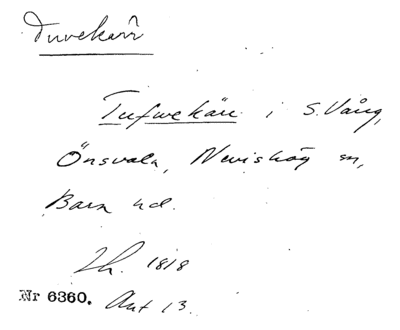 Tuvekärr
Tufwekärr i S. Vång,
Önsvala, Nevishög sn,
Bara hd.
Lh. 1818
Nr 6360. Akt 13.